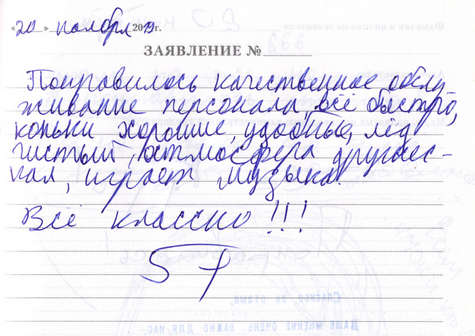 «20» ноября 2019г.
ЗАЯВЛЕНИЕ №
Понравилось качественное обслу
живание персонала, всё быстро,
коньки хорошие, удобные, лёд
чистый, атмосфера дружес-
кая, играет музыка.
Всё классно!!!
5+